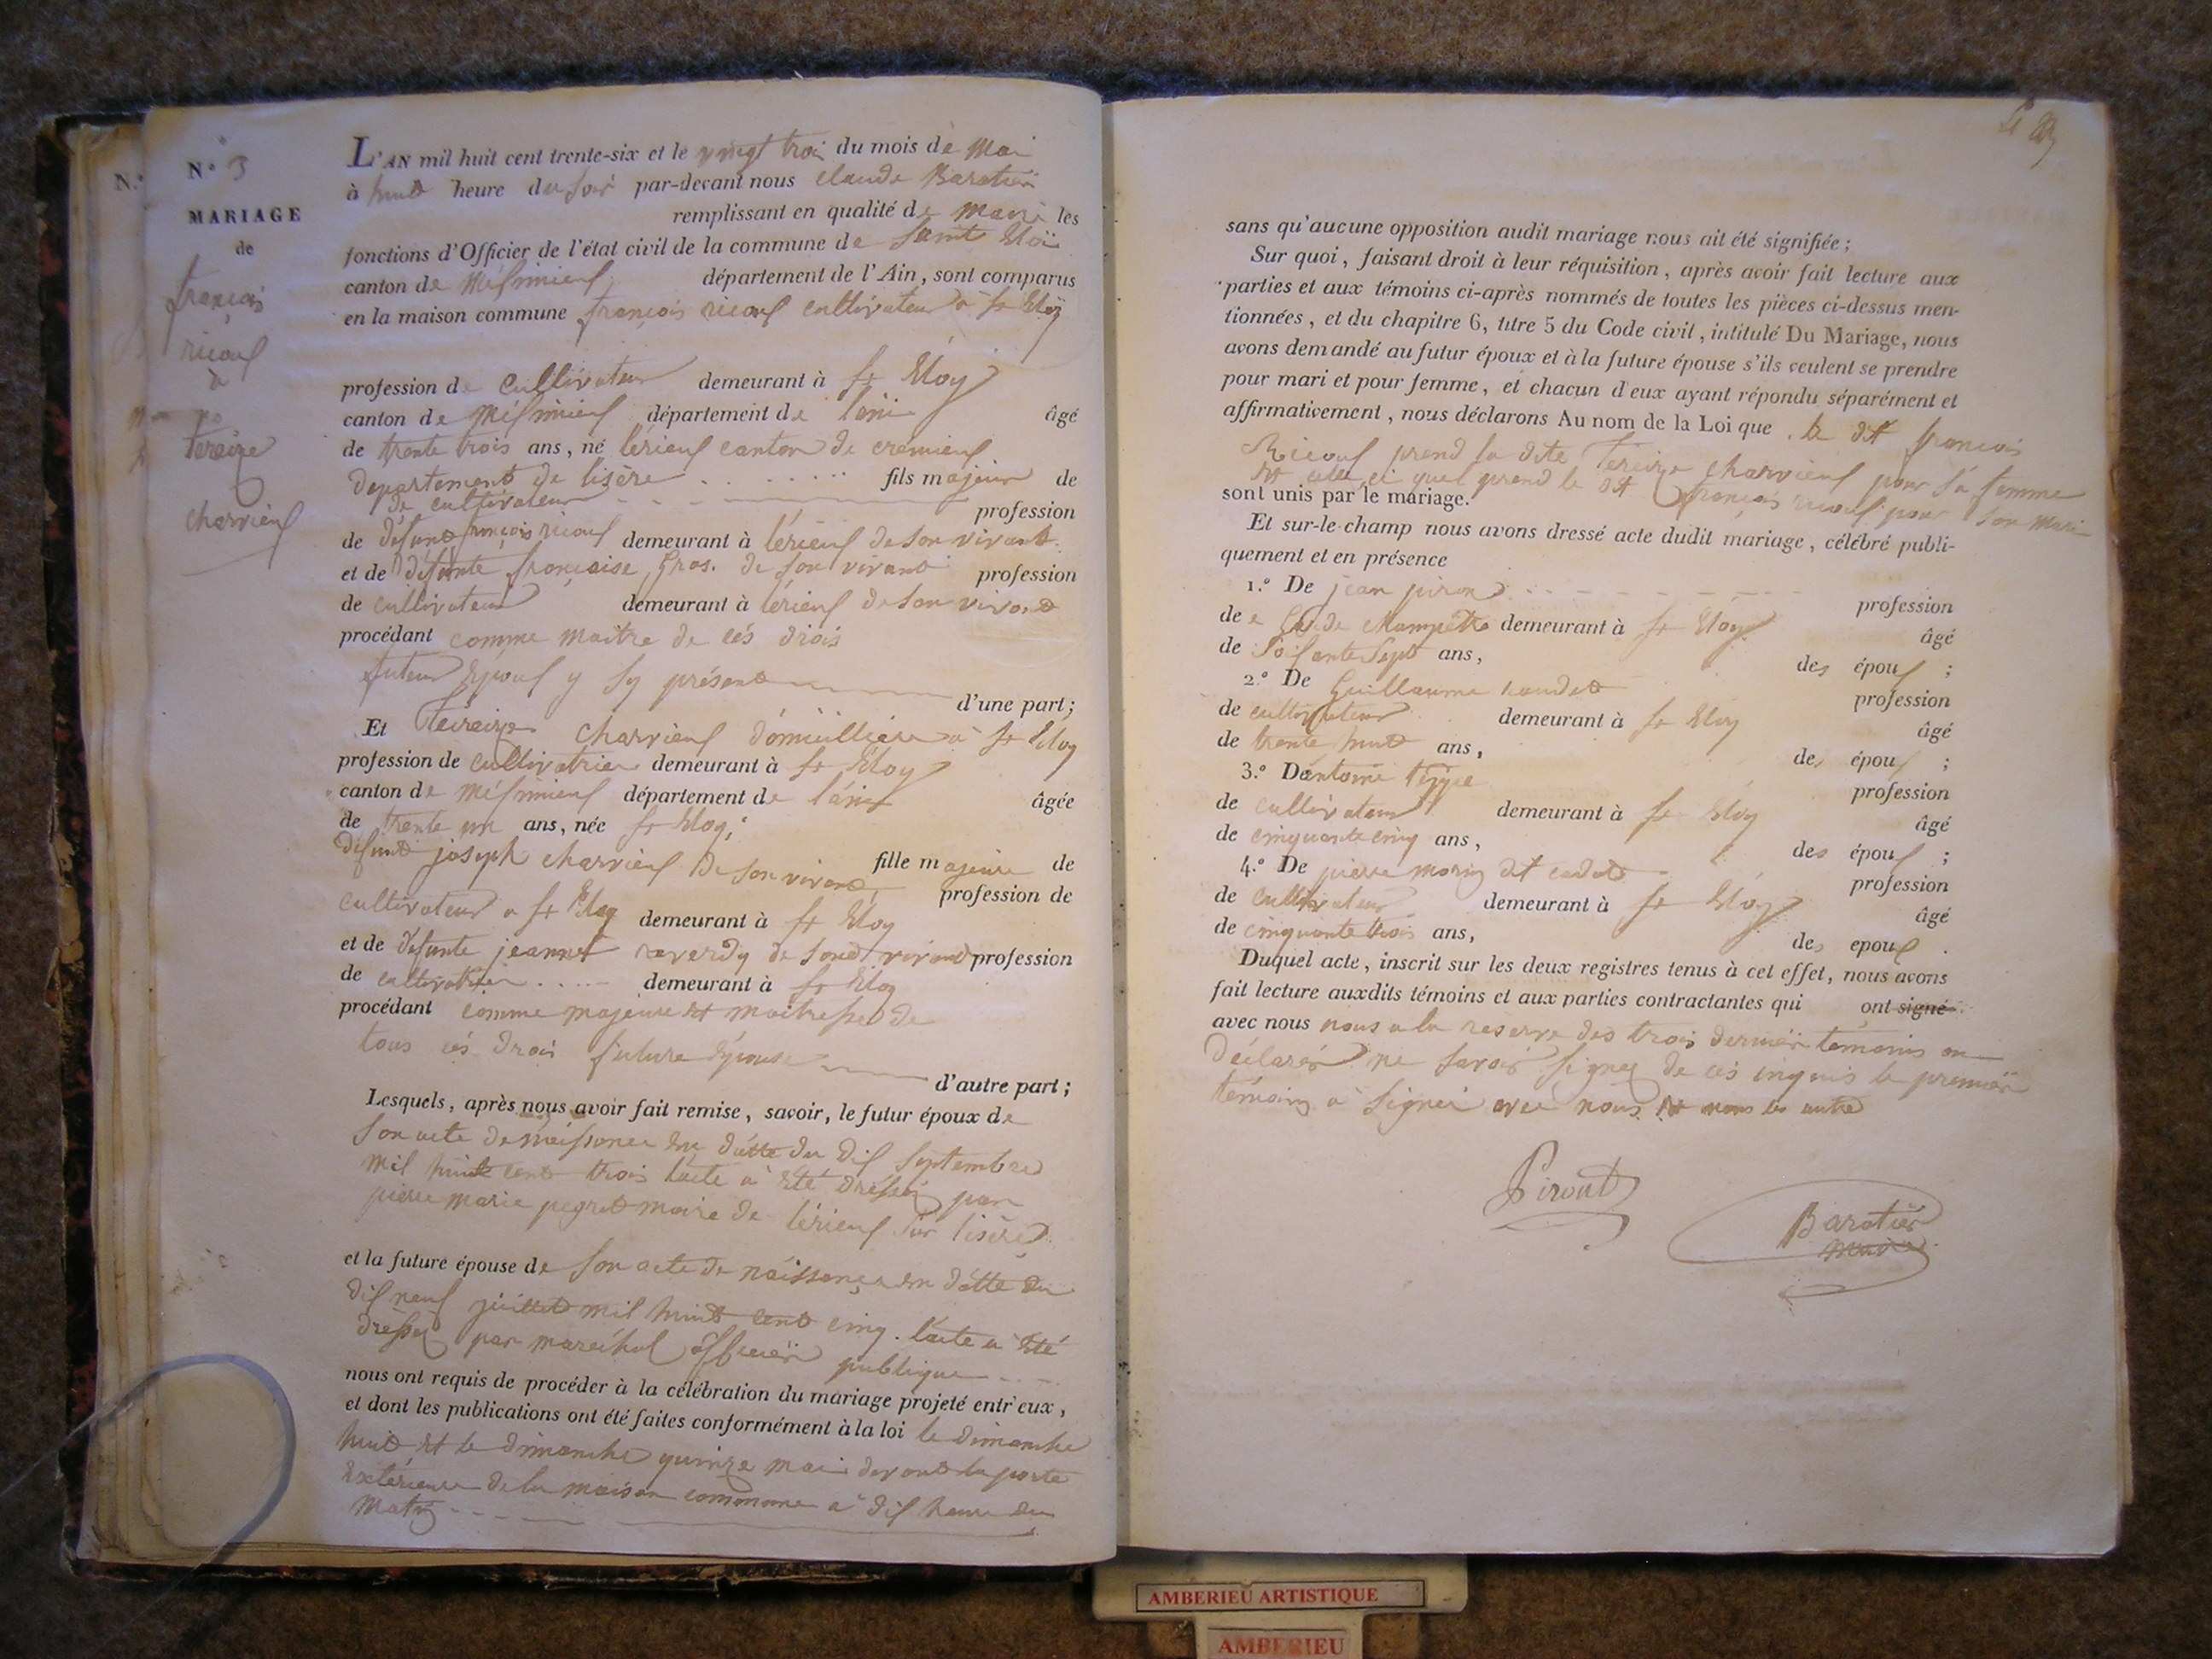 N.°
N° 3
MARIAGE
de
françois
rieouf
à
tereize
charvieuf
L'AN mil huit cent trente-six et le vingt trois du mois de Mai
à huit heure du soir par-devant nous claude Baratier
remplissant en qualité de maire les
fonctions d'Officier de l'état civil de la commune de saint Eloi
canton de méximieuf département de l'Ain, sont comparus
en la maison commune françois rieouf cultivateur à st Eloy
profession de cultivateur demeurant à st Eloy
canton de méximieuf département de lain âgé
de trente trois ans, né lérieuf canton de crémieuf
departement de lisère fils majeur de
de cultivateur profession
de défunt françois rieouf demeurant à lérieuf de son vivant
et de défunte françoise Gros. de son vivant profession
de cultivateur demeurant à lérieuf de son vivant
procédant comme maitre de cés drois
futeur Epouf y sy présent d'une part;
Et tereize charvieuf domicillière à st Eloy
profession de cultivatrice demeurant à st Eloy
canton de méximieuf département de l'ain âgée
de trente un ans, née st Eloy,
défunt joseph charvieuf de son vivant fille majeure de
profession de
cultivateur a st Eloy demeurant à st Eloy
et de défunte jeannet reverdy de vivant profession
de cultivatrice demeurant à st Eloy
procédant comme majeure et maitresse de
tous cés drois future Epouse
d'autre part;
Lesquels, après nous avoir fait remise, savoir, le futur époux de
son acte de naissance en datte du dif septembre
mil huit cent trois lacte a Eté dressé par
pierre marie maire de lérieuf sur lisère
et la future épouse de son acte de naissance en datte du
dif neuf juillet mil huit cent cinq. lacte a Eté
dressé par maréchal officier publique
nous ont requis de procéder à la célébration du mariage projeté entr'eux,
et dont les publications ont été faites conformément à la loi le dimanche
huit et le dimanche quinze mai devant la porte
Extérieure de la maison commune a dif heure du
matin
sans qu'aucune opposition audit mariage nous ait été signifiée;
Sur quoi, faisant droit à leur réquisition, après avoir fait lecture aux
parties et aux témoins ci-après nommés de toutes les pièces ci-dessus men-
tionnées, et du chapitre 6, titre 5 du Code civil, intitulé Du Mariage, nous
avons demandé au futur époux et à la future épouse s'ils veulent se prendre
pour mari et pour femme, et chacun d'eux ayant répondu séparément et
affirmativement, nous déclarons Au nom de la Loi que le dit françois
Rieouf prend la dite tereize charvieuf pour sa femme
prend le dit françois rieouf pour son mari
sont unis par le mariage.
Et sur-le-champ nous avons dressé acte dudit mariage, célébré publi-
quement et en présence
1.° De jean piron profession
de Garde champetre demeurant à st Eloy âgé
de soisante sept ans, des épouf ;
2.° De Guillaume profession
de cultivateur demeurant à st Eloy âgé
de trente huit ans, des épouf ;
3.° Dantoine profession
de cultivateur demeurant à st Eloy âgé
de cinquante cinq ans, des épouf ;
4.° De pierre morin dit cadet profession
de cultivateur demeurant à st Eloy âgé
de cinquante trois ans, des epouf .
Duquel acte, inscrit sur les deux registres tenus à cet effet, nous avons
fait lecture auxdits témoins et aux parties contractantes qui ont signé
avec nous nous a la reserve des trois dernier témoins on
déclaré ne savoir signez de cés le premier
témoins a signer avec nous et nous les autre
Pirout
Baratier
maire
AMBERIEU ARTISTIQUE
AMBERIEU